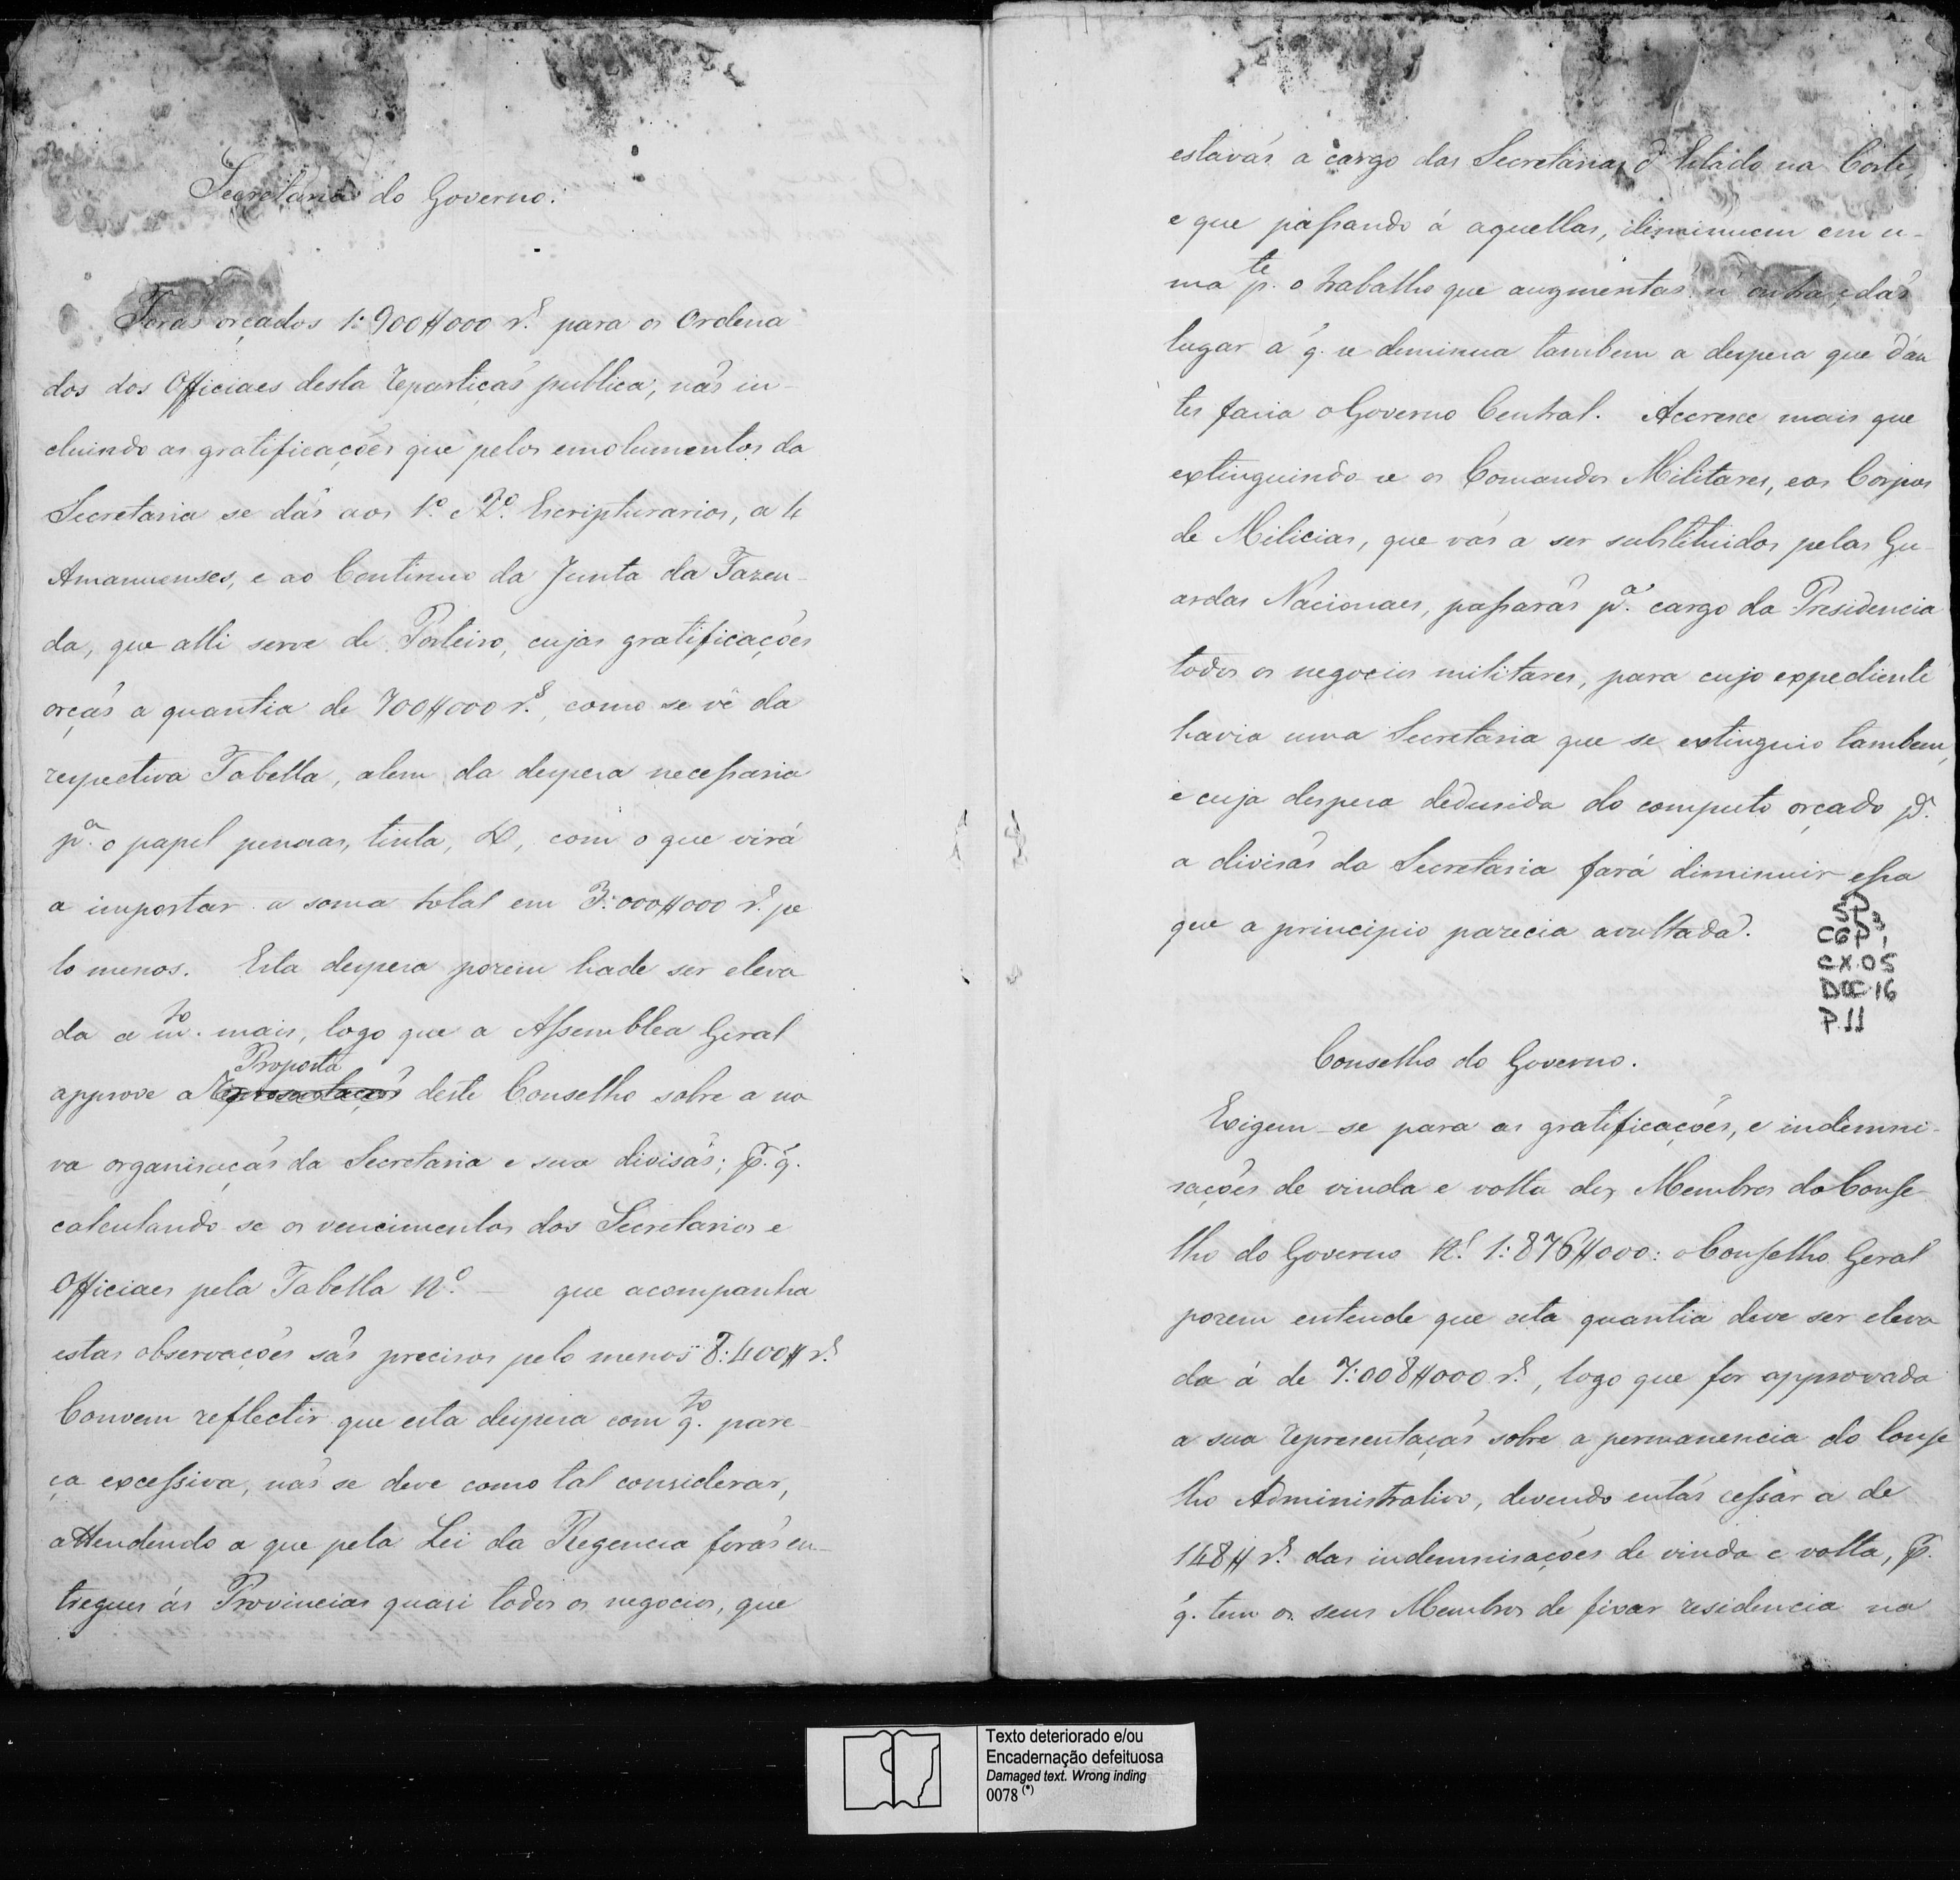 Secretaria do Governo.
Forão orçados 1:900$000 rs. para os Ordena
dos dos Officiaes desta repartição publica, não in-
cluindo as gratificações que pelos emolumentos da
Secretaria se dão aos 1º. e 2º. Escripturarios, a 4
Amanuenses, e ao Continuo da Junta da Fazen-
da, que alli serve de Porteiro, cujas gratificações
orção a quantia de 700$000 rs., como se vê da
respectiva Tabella, alem da despesa necessaria
pª. o papel pennas, tinta, &, com o que virá
a importar a soma total em 3:000$000 rs. pe
lo menos. Esta despesa porem hade ser eleva
da a mto. mais, logo que a Assemblea Geral
Proposta
approve a Representação deste Conselho sobre a no
va organisação da Secretaria e sua divisão; p. q.
calculando-se os vencimentos dos Secretarios e
Officiaes pela Tabella Nº. — que acompanha
estas observações são precisos pelo menos 8:400$ rs.
Convem reflectir que esta despesa com qto. pare-
ça excessiva, não se deve como tal considerar,
attendendo a que pela Lei da Regencia forão en-
tregues ás Provincias quasi todos os negocios, que
estavão a cargo das Secretarias d'Estado na Corte,
e que passando á aquellas, diminuem em u-
ma pte. o trabalho que augmentão n'outra, e dão
lugar a q. se deminua tambem a despesa que d'an
tes fasia o Governo Central. Accresce mais que
extinguindo-se os Comandos Militares, e os Corpos
de Milicias, que vão a ser substituidos pelas Gu-
ardas Nacionaes, passarão pª. cargo da Presidencia
todos os negocios militares, para cujo expediente
havia uma Secretaria que se extinguio tambem,
e cuja despesa dedusida do computo orçado pª.
a divisão da Secretaria fará diminuir essa
que a principio parecia avultada.
SP
CGP3,
CX.05
DOC.16
P.11
Conselho do Governo.
Exigem-se para as gratificações, e indemni-
sações de vinda e volta dos Membros do Conse
lho do Governo Rs. 1:876$000: o Conselho Geral
porem entende que esta quantia deve ser eleva
da á de 7:008$000 rs., logo que for approvada
a sua representação sobre a permanencia do Conse
lho Administrativo, devendo então cessar a de
148$ rs. das indemnisações de vinda e volta, p.
q. tem os seus Membros de fixar residencia na
Texto deteriorado e/ou
Encadernação defeituosa
Damaged text. Wrong inding
0078 (*)